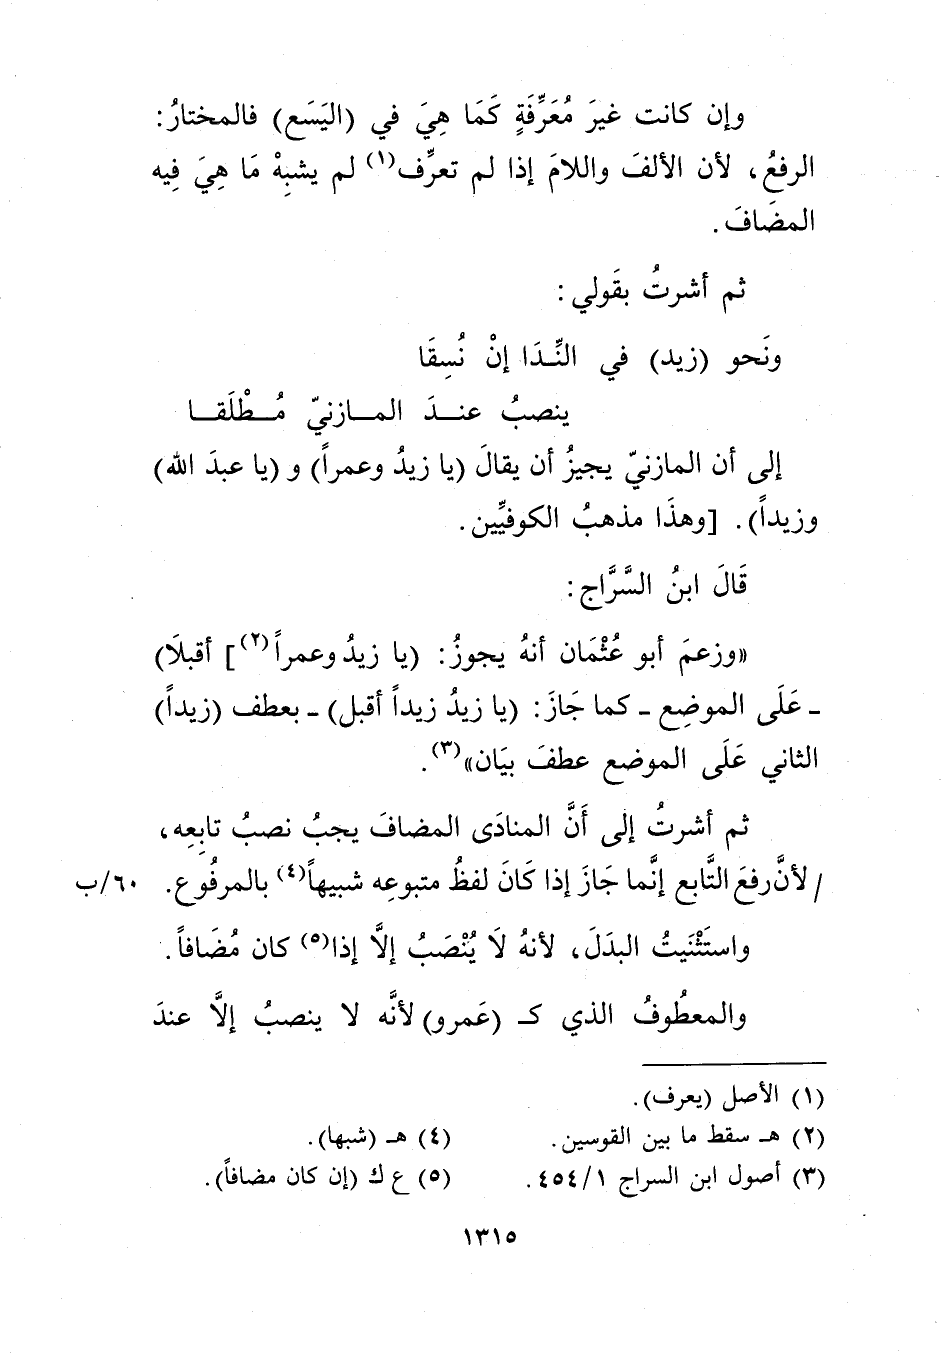 وإن كانت غيرَ مُعَرِّفَةٍ كَمَا هِيَ في (اليَسَع) فالمختارُ:
الرفعُ، لأن الألفَ واللامَ إذا لم تعرِّف(١) لم يشبِهْ مَا هِيَ فِيه
المضَافَ.
ثم أشرتُ بقَولي:
ونَحو (زيد) في النِّدَا إنْ نُسِقَا
ينصبُ عندَ المازنيّ مُطْلَقا
إلى أن المازنيّ يجيزُ أن يقالَ (يا زيدُ وعمراً) و (يا عبدَ الله)
وزيداً). [وهذَا مذهبُ الكوفيِّين.
قَالَ ابنُ السَّرَّاج:
«وزعمَ أبو عُثْمَان أنهُ يجوزُ: (يا زيدُ وعمراً(٢)] أقبلَا)
ـ عَلَى الموضِع ـ كما جَازَ: (يا زيدُ زيداً أقبل) ـ بعطف (زيداً)
الثاني عَلَى الموضع عطفَ بيَان»(٣).
ثم أشرتُ إلى أَنَّ المنادَى المضافَ يجبُ نصبُ تابعِه،
/ لأنَّ رفعَ التَّابع إنَّما جَازَ إذا كَانَ لفظُ متبوعِه شبيهاً(٤) بالمرفُوع. ٦٠/ب
واستَثْنَيتُ البدَلَ، لأنهُ لَا يُنْصَبُ إلاَّ إذا(٥) كان مُضَافاً.
والمعطُوفُ الذي كـ (عَمرو) لأنَّه لا ينصبُ إلاَّ عندَ
(١) الأصل (يعرف).
(٢) هـ سقط ما بين القوسين.
(٤) هـ (شبها).
(٣) أصول ابن السراج ٤٥٤/١.
(٥) ع ك (إن كان مضافاً).
١٣١٥